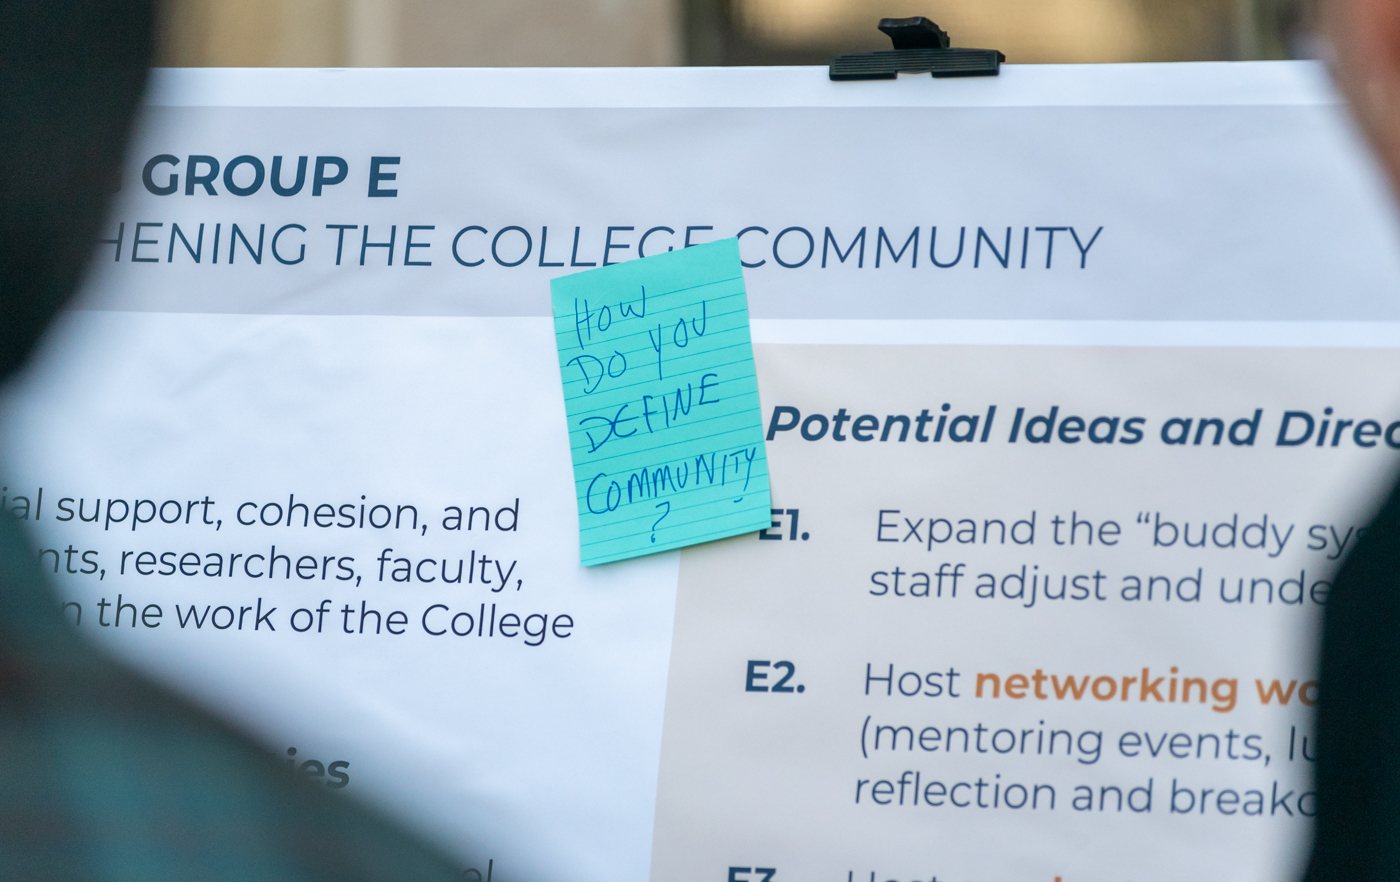 GROUP E
THE COLLEGE COMMUNITY
HOW
DO YOU
DEFINE
COMMUNITY
?
support, cohesion, and
researchers, faculty,
the work of the College
Potential Ideas and
E1. Expand the “buddy
staff adjust and
E2. Host networking
(mentoring events,
reflection and
E3. Host